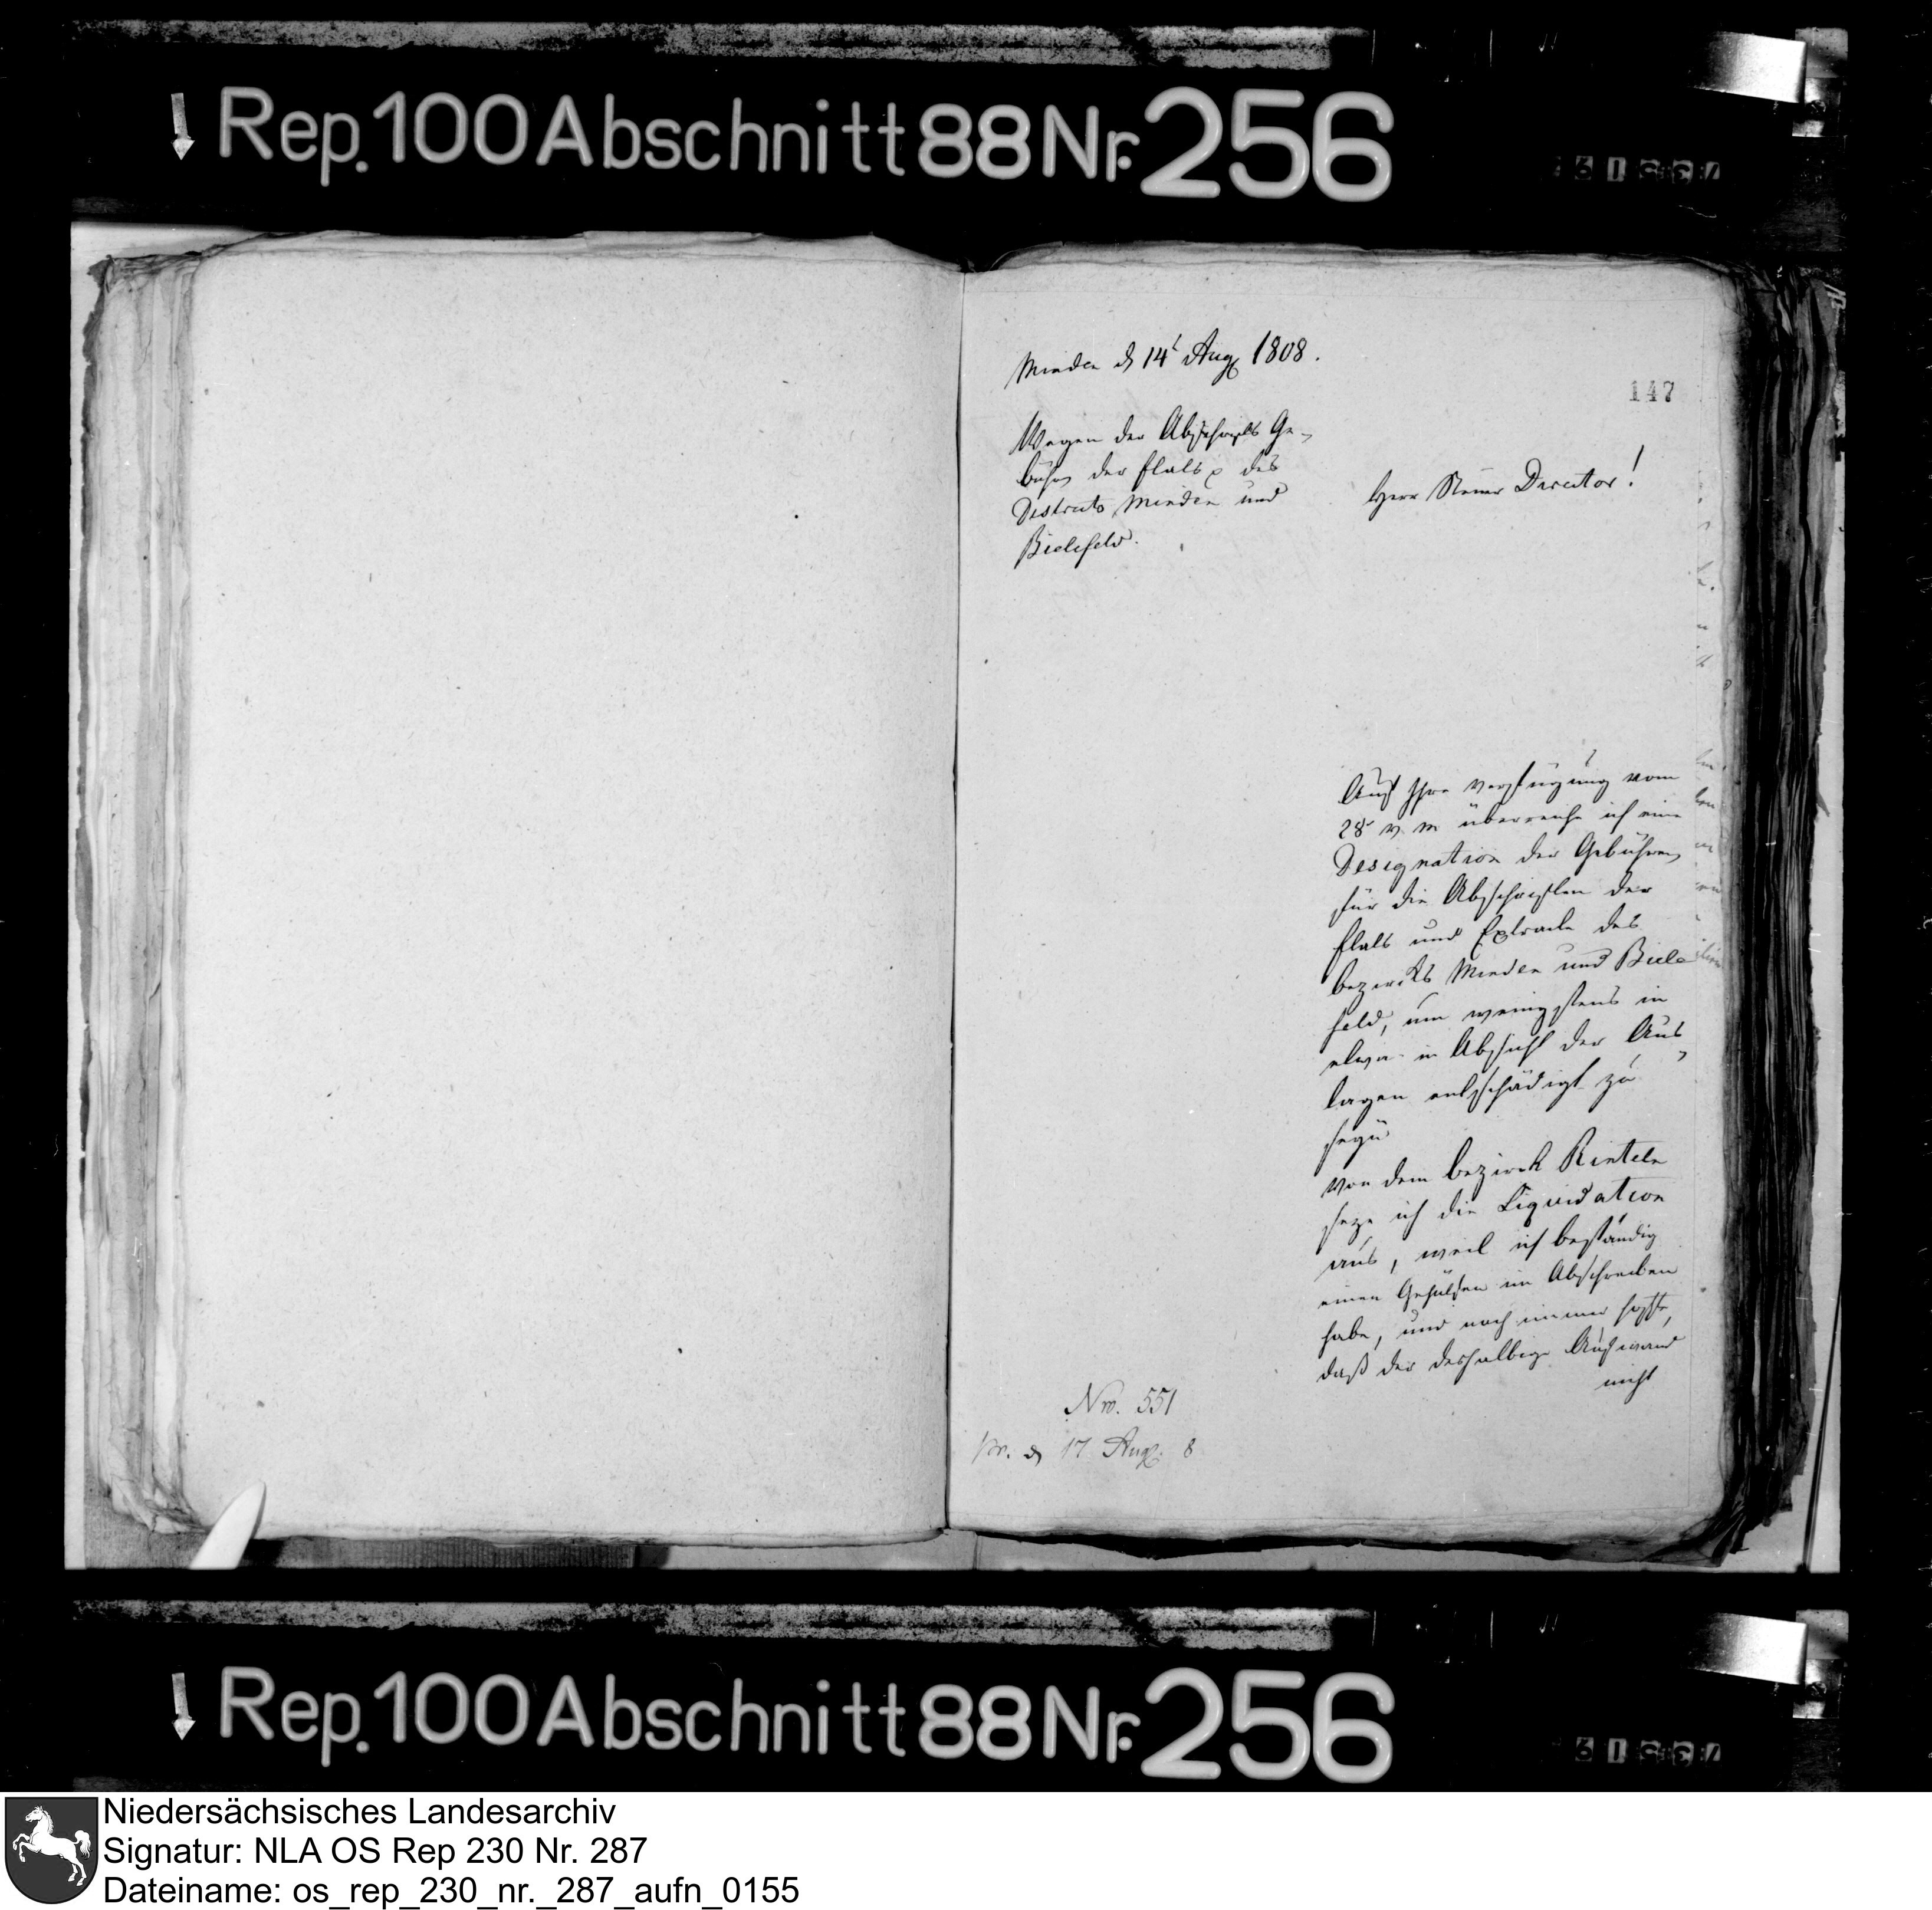 Rep. 100 Abschnitt 88 Nr. 256
Minden d 14t Aug 1808.
147
Wegen der Abschrifts Ge-
bühr der Etats p des
Districts Minden und
Bielefeld.
Herr Steuer Director!
Auf Ihre Verfügung vom
28t v. M. überreiche ich eine
Designation der Gebühren
für die Abschriften der
Etats und Extracte des
Bezirks Minden und Biele
feld, um wenigstens in
etwa in Absicht der Aus
lagen entschädigt zu
seyn
Von dem Bezirck Rinteln
seze ich die Liquidation
aus, weil ich beständig
einen Gehülfen im Abschreiben
habe, und noch immer hoffe,
daß der deshalbige Aufwand
nicht
Nro. 551
pr. d 17 Aug. 8
Rep. 100 Abschnitt 88 Nr. 256
Niedersächsisches Landesarchiv
Signatur: NLA OS Rep 230 Nr. 287
Dateiname: os_rep_230_nr._287_aufn_0155